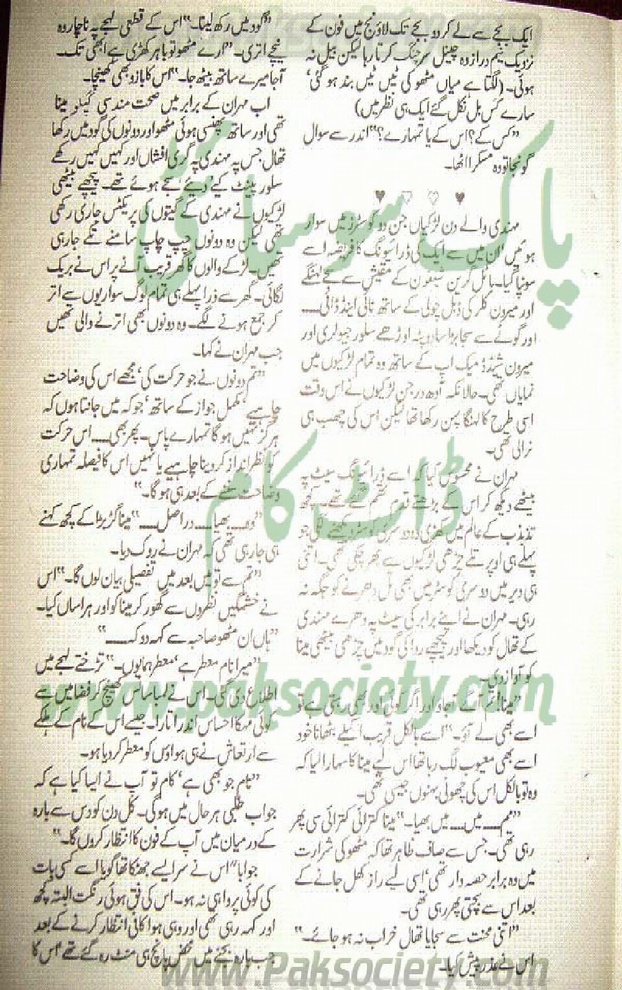 ایک بجے سے لے کر دو بجے تک لاؤنج میں فون کے
نزدیک نیم دراز وہ چینل سرچنگ کرتا رہا لیکن بیل نہ
ہوئی۔ (لگتا ہے میاں مٹھو کی ٹیں ٹیں بند ہو گئی،
سارے کس بل نکل گئے ایک ہی نظر میں)
"کس کے؟ اس کے یا تمہارے؟" اندر سے سوال
گونجا تو وہ مسکرا اٹھا۔
♥ ♡ ♡ ♥
مہندی والے دن لڑکیاں جن دو کوسٹرز میں سوار
ہوئیں ان میں سے ایک کی ڈرائیونگ کا فریضہ اسے
سونپا گیا۔ باٹل گرین سیفون کے مقیش سے سجے لہنگے
اور میرون کلر کی ڈبل چولی کے ساتھ ٹائی اینڈ ڈائی
اور گوٹے سے سجا بڑا سا دوپٹہ اوڑھے سلور جیولری اور
میرون شیڈڈ میک اپ کے ساتھ وہ تمام لڑکیوں میں
نمایاں تھی۔ حالانکہ آدھ درجن لڑکیوں نے اس وقت
اسی طرح کا لہنگا پہن رکھا تھا لیکن اس کی چھب ہی
نرالی تھی۔
مہران نے محسوس کیا کہ اسے ڈرائیونگ سیٹ پہ
بیٹھے دیکھ کر اس کے بڑھتے قدم تھم گئے تھے۔ کچھ
تذبذب کے عالم میں کھڑی وہ دوسری کوسٹر دیکھنے لگی جو
پہلے ہی اوپر تلے چڑھی لڑکیوں سے بھر چکی تھی۔ اتنی
ہی دیر میں دوسری کوسٹر میں بھی تل دھرنے کو جگہ نہ
رہی۔ مہران نے اپنے برابر کی سیٹ پہ دھرے مہندی
کے تھال کو دیکھا اور پیچھے ردا کی گود میں چڑھی بیٹھی مینا
کو آواز دی۔
"مینا! تم آگے آجاؤ اور اگر کوئی اور بھی رہتی ہے تو
اسے بھی لے آؤ۔" اسے بالکل قریب اکیلے بٹھانا خود
اسے بھی معیوب لگ رہا تھا اس لیے مینا کا سہارا لیا کہ
وہ تو بالکل اس کی چھوٹی بہنوں جیسی تھی۔
"مم.... میں.... میں بھیا۔" مینا کترائی کترائی سی پھر
رہی تھی۔ جس سے صاف ظاہر تھا کہ مٹھو کی شرارت
میں وہ برابر حصہ دار تھی، اسی لیے راز کھل جانے کے
بعد اس سے بچتی پھر رہی تھی۔
"اتنی محنت سے سجایا تھال خراب نہ ہو جائے۔"
اس نے عذر پیش کیا۔
"گود میں رکھ لینا۔" اس کے قطعی لہجے پہ ناچار وہ
نیچے اتری۔ "ارے مٹھو تو باہر کھڑی ہے ابھی تک۔
آجا میرے ساتھ بیٹھ جا۔" اس کا بازو بھی کھینچا۔
اب مہران کے برابر میں صحت مند سی مینا
تھی اور ساتھ پھنسی ہوئی مٹھو اور دونوں کی گود میں رکھا
تھال جس پہ مہندی پہ گری افشاں اور کہیں کہیں رکھے
سلور پینٹ کیے دیئے سجے ہوئے تھے۔ پیچھے بیٹھی
لڑکیوں نے مہندی کے گیتوں کی پریکٹس جاری رکھی
تھی لیکن وہ دونوں چپ چاپ سامنے تکے جا رہی
تھیں۔ لڑکے والوں کا گھر قریب آنے پر اس نے بریک
لگائی۔ گھر سے ذرا پہلے ہی تمام لوگ سواریوں سے اتر
کر جمع ہونے لگے۔ وہ دونوں بھی اترنے والی تھیں
جب مہران نے کہا۔
"تم دونوں نے جو حرکت کی، مجھے اس کی وضاحت
چاہیے، مکمل جواز کے ساتھ، جو کہ میں جانتا ہوں کہ
ہرگز نہیں ہو گا تمہارے پاس۔ پھر بھی.... اس حرکت
کو نظر انداز کر دینا چاہیے یا نہیں اس کا فیصلہ تمہاری
وضاحت سننے کے بعد ہی ہو گا۔"
"وہ.... بھیا.... دراصل...." مینا گڑبڑا کے کچھ کہنے
ہی جا رہی تھی کہ مہران نے روک دیا۔
"تم سے تو میں بعد میں تفصیلی بیان لوں گا۔" اس
نے خشمگیں نظروں سے گھور کر مینا کو اور ہراساں کیا۔
"ہاں ان مٹھو صاحبہ سے کہہ دو کہ...."
"میرا نام معطر ہے، معطر ہمایوں۔" تڑختے لہجے میں
اطلاع دی گئی۔ اس نے لمبا سانس کھینچ کر فضا میں سے
کوئی مہکا احساس اندر اتارا۔ جیسے اس کے نام کے ہلکے
سے ارتعاش نے ہی ہواؤں کو معطر کر دیا ہو۔
"نام جو بھی ہے، کام تو آپ نے ایسا کیا ہے کہ
جواب طلبی ہر حال میں ہو گی۔ کل دن کو دس سے بارہ
کے درمیان میں آپ کے فون کا انتظار کروں گا۔"
جوابا" اس نے سر ایسے جھٹکا تھا گویا اسے کسی بات
کی کوئی پروا ہی نہ ہو۔ اس کی فق ہوئی رنگت البتہ کچھ
اور کہہ رہی تھی اور وہی ہوا کافی انتظار کرنے کے بعد
جب بارہ بجنے میں محض پانچ ہی منٹ رہ گئے تھے، اس کا
پاک سوسائٹی
ڈاٹ کام
www.paksociety.com
www.Paksociety.com